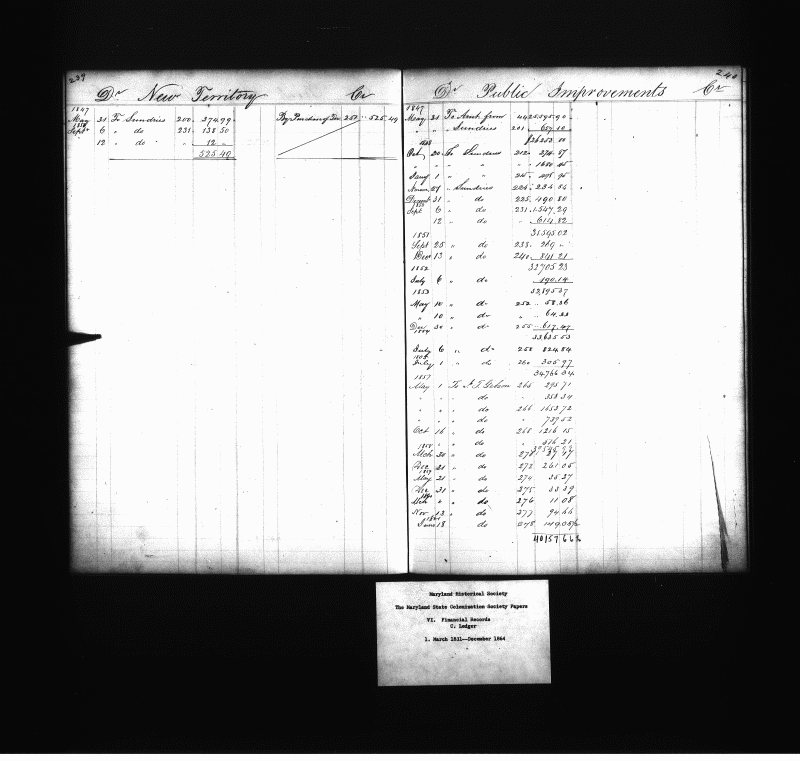 239
Dr New Territory Cr
1847
May 31 To Sundries 200 374.99
Sept 6 " do 231 138 50
12 " do " 12 "
525.49
By Purchase of Ter 252 525.49
240
Dr Public Improvements Cr
1847
May 31 To Amt from 44 25595.90
" " " Sundries 201 657.10
$26253 00
Oct 20 To Sundries 212
" " " " 1680.45
Jany 1 " "
27 " Sundries 224 234 84
31 " do 225 490.80
Sept 6 " do 231 1.547.29
12 " do " 614 82
31595 02
1851
Sept 25 " do 238 269 "
Dec 13 " do 240 841 21
32705 23
1852
July 6 " do " 190.14
32895 37
1853
May 10 " do 252 58.36
" 10 " do "
Dec 30 " do 255 617.47
33635 53
1854
July 6 " do 258 824 84
July 1 " do 260 305 97
34766 34
1857
May 1 To J. T. Gibson 265 295 71
" " " do 353 34
" " " do 266 1653 72
" " " do 739 52
Oct 16 " do 268 1216 15
" " " do 516 21
1858
Mch 30 " do 271 27 47
Dec 21 " do 272 261 05
1859
May 21 " do 274 35 27
Dec 31 " do 275 33 39
1860
Mch " " do 276 11 08
Nov 13 " do 277 94 66
1861
June 18 " do 278 149.05½
40157 66½
Maryland Historical Society
The Maryland State Colonization Society Papers
VI. Financial Records
C. Ledger
1. March 1831--December 1864